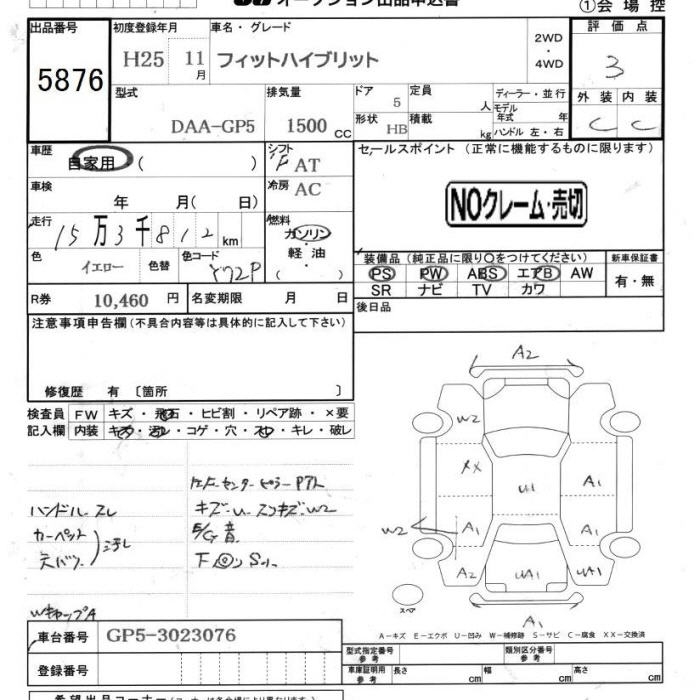 オークション出品申込書
①会場控
出品番号
5876
初度登録年月
H25 11月
車名・グレード
フィットハイブリット
2WD
・
4WD
評価点
3
型式
DAA-GP5
排気量
1500 cc
ドア
5
定員
人
形状
HB
積載
kg
ディーラー・並行
モデル年式 年
ハンドル 左・右
外装 内装
C C
車歴
自家用 ( )
シフト
F AT
車検
年 月( 日)
冷房
AC
走行
15万3千812 km
燃料
ガソリン
軽・油
( )
色
イエロー
色替
色コード
Y72P
R券
10,460 円
名変期限 月 日
セールスポイント (正常に機能するものに限ります)
NOクレーム・売切
装備品 (純正品に限り○をつけてください)
PS PW ABS エアB AW
SR ナビ TV カワ
新車保証書
有・無
後日品
注意事項申告欄 (不具合内容等は具体的に記入して下さい)
修復歴 有 〔箇所 〕
検査員
記入欄
FW キズ・飛石・ヒビ割・リペア跡・×要
内装 キズ・汚レ・コゲ・穴・スレ・キレ・破レ
ハンドルスレ
カーペット
天バリ
汚レ
Wキャップ A
センターピラー
キズ・U・スリキズ・W2
E/G 音
A2
W2
XX
U1
A1
W2
A1
A1
A2
UA1
UA1
スペア
A1
A-キズ E-エクボ U-凹み W-補修跡 S-サビ C-腐食 XX-交換済
車台番号
GP5-3023076
登録番号
型式指定番号
参考
類別区分番号
参考
車庫証明用
参考
長さ cm
幅 cm
高さ cm
希望出品コーナー